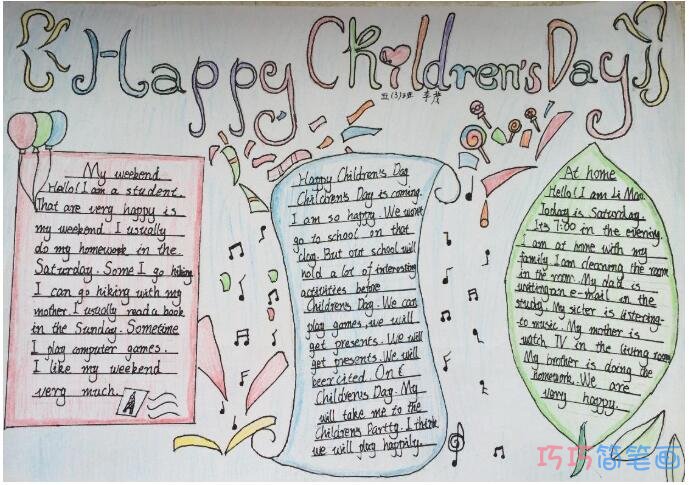 Happy Children's Day
五(3)班
My weekend
Hello! I am a student.
That are very happy is
my weekend. I usually
do my homework in the
Saturday. Some I go hiking
I can go hiking with my
mother. I usually read a book
in the Sunday. Sometime
I play computer games.
I like my weekend
very much.
Happy Children's Day
Children's Day is coming.
I am so happy. We won't
go to school on that
day. But our school will
hold a lot of interesting
activities before
Children's Day. We can
play games, we will
get presents. We will
get presents. We will
On
Children's Day. My
will take me to the
Children's Partty. I think
we will play happily.
At home
Hello! I am Li Mao.
Today is Saturday.
Its 7:00 in the evening.
I am at home with my
family. I am cleanning the room
in the room. My dad is
writing an e-mail in the
study. My sister is listening
to music. My mother is
watch TV in the living room
My brother is doing the
homework. We are
very happy.
巧巧简笔画